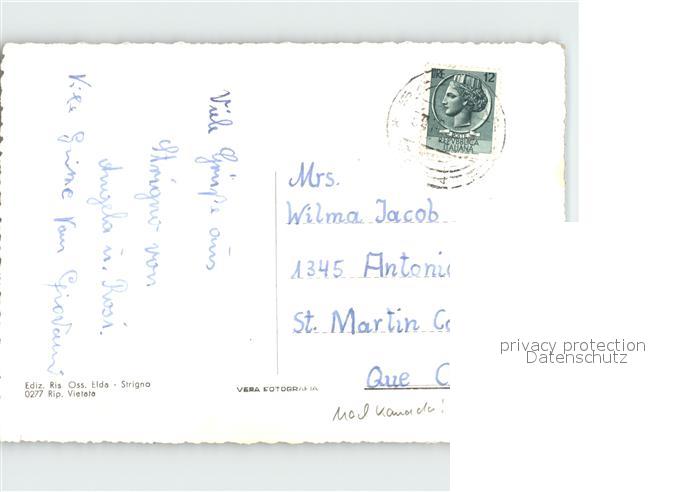 Viele Grüße aus
Strigno von
Angela u. Rosi.
Viele Grüsse von Giovanni
LIRE 12
REPVBBLICA
ITALIANA
Mrs.
Wilma Jacob
1345 Antoni
St. Martin
Que C
Ediz. Ris. Oss. Elda - Strigno
0277 Rip. Vietata
VERA FOTOGRAFIA
privacy protection
Datenschutz